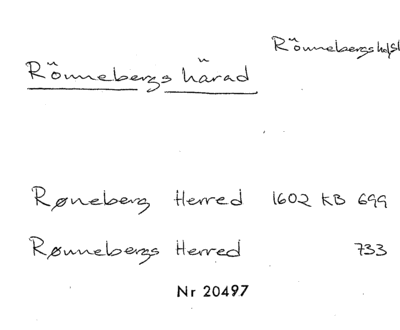 Rönnebergs hd Sk
Rönnebergs härad
Røneberg Herred 1602 KB 699
Rønnebergs Herred 733
Nr 20497